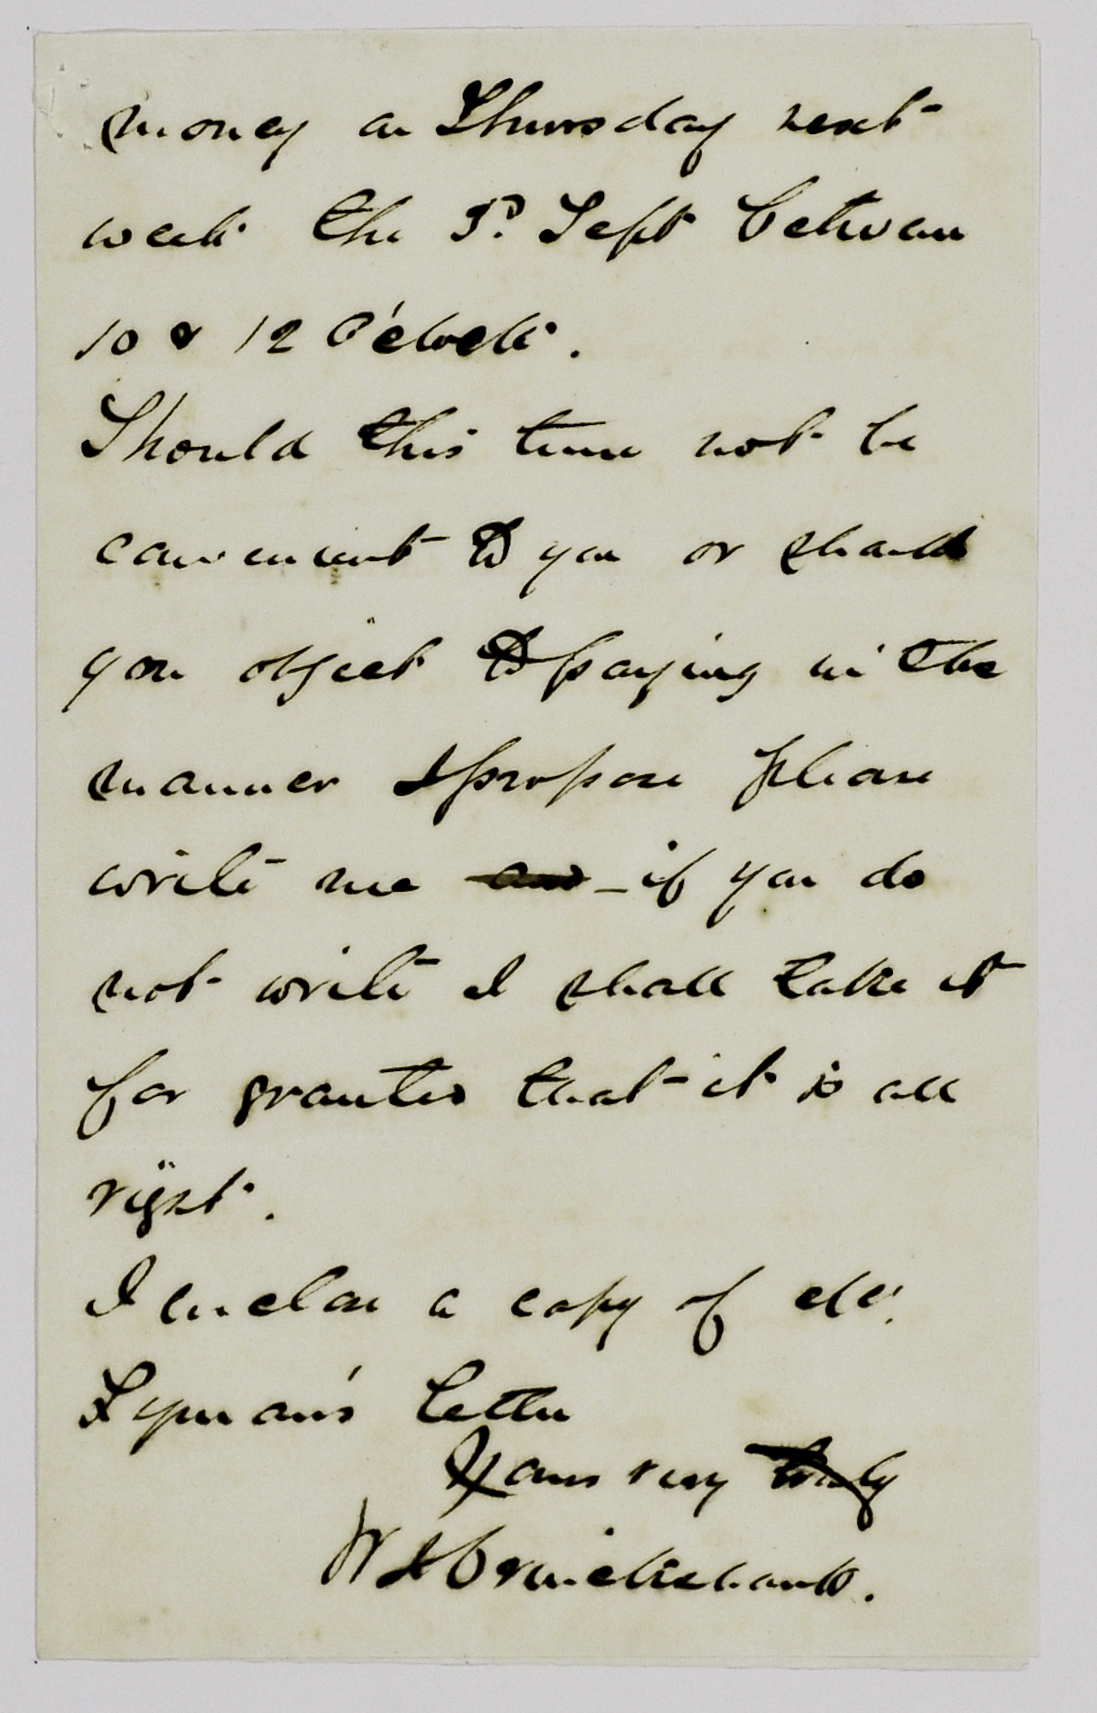 money on Thursday next
week the 3d. Sept between
10 & 12 O'clock.
Should this time not be
convenient to you or should
you object to paying in the
manner I propose please
write me and - if you do
not write I shall take it
for granted that it is all
right.
I enclose a copy of
Lyman's letter
Yours very truly